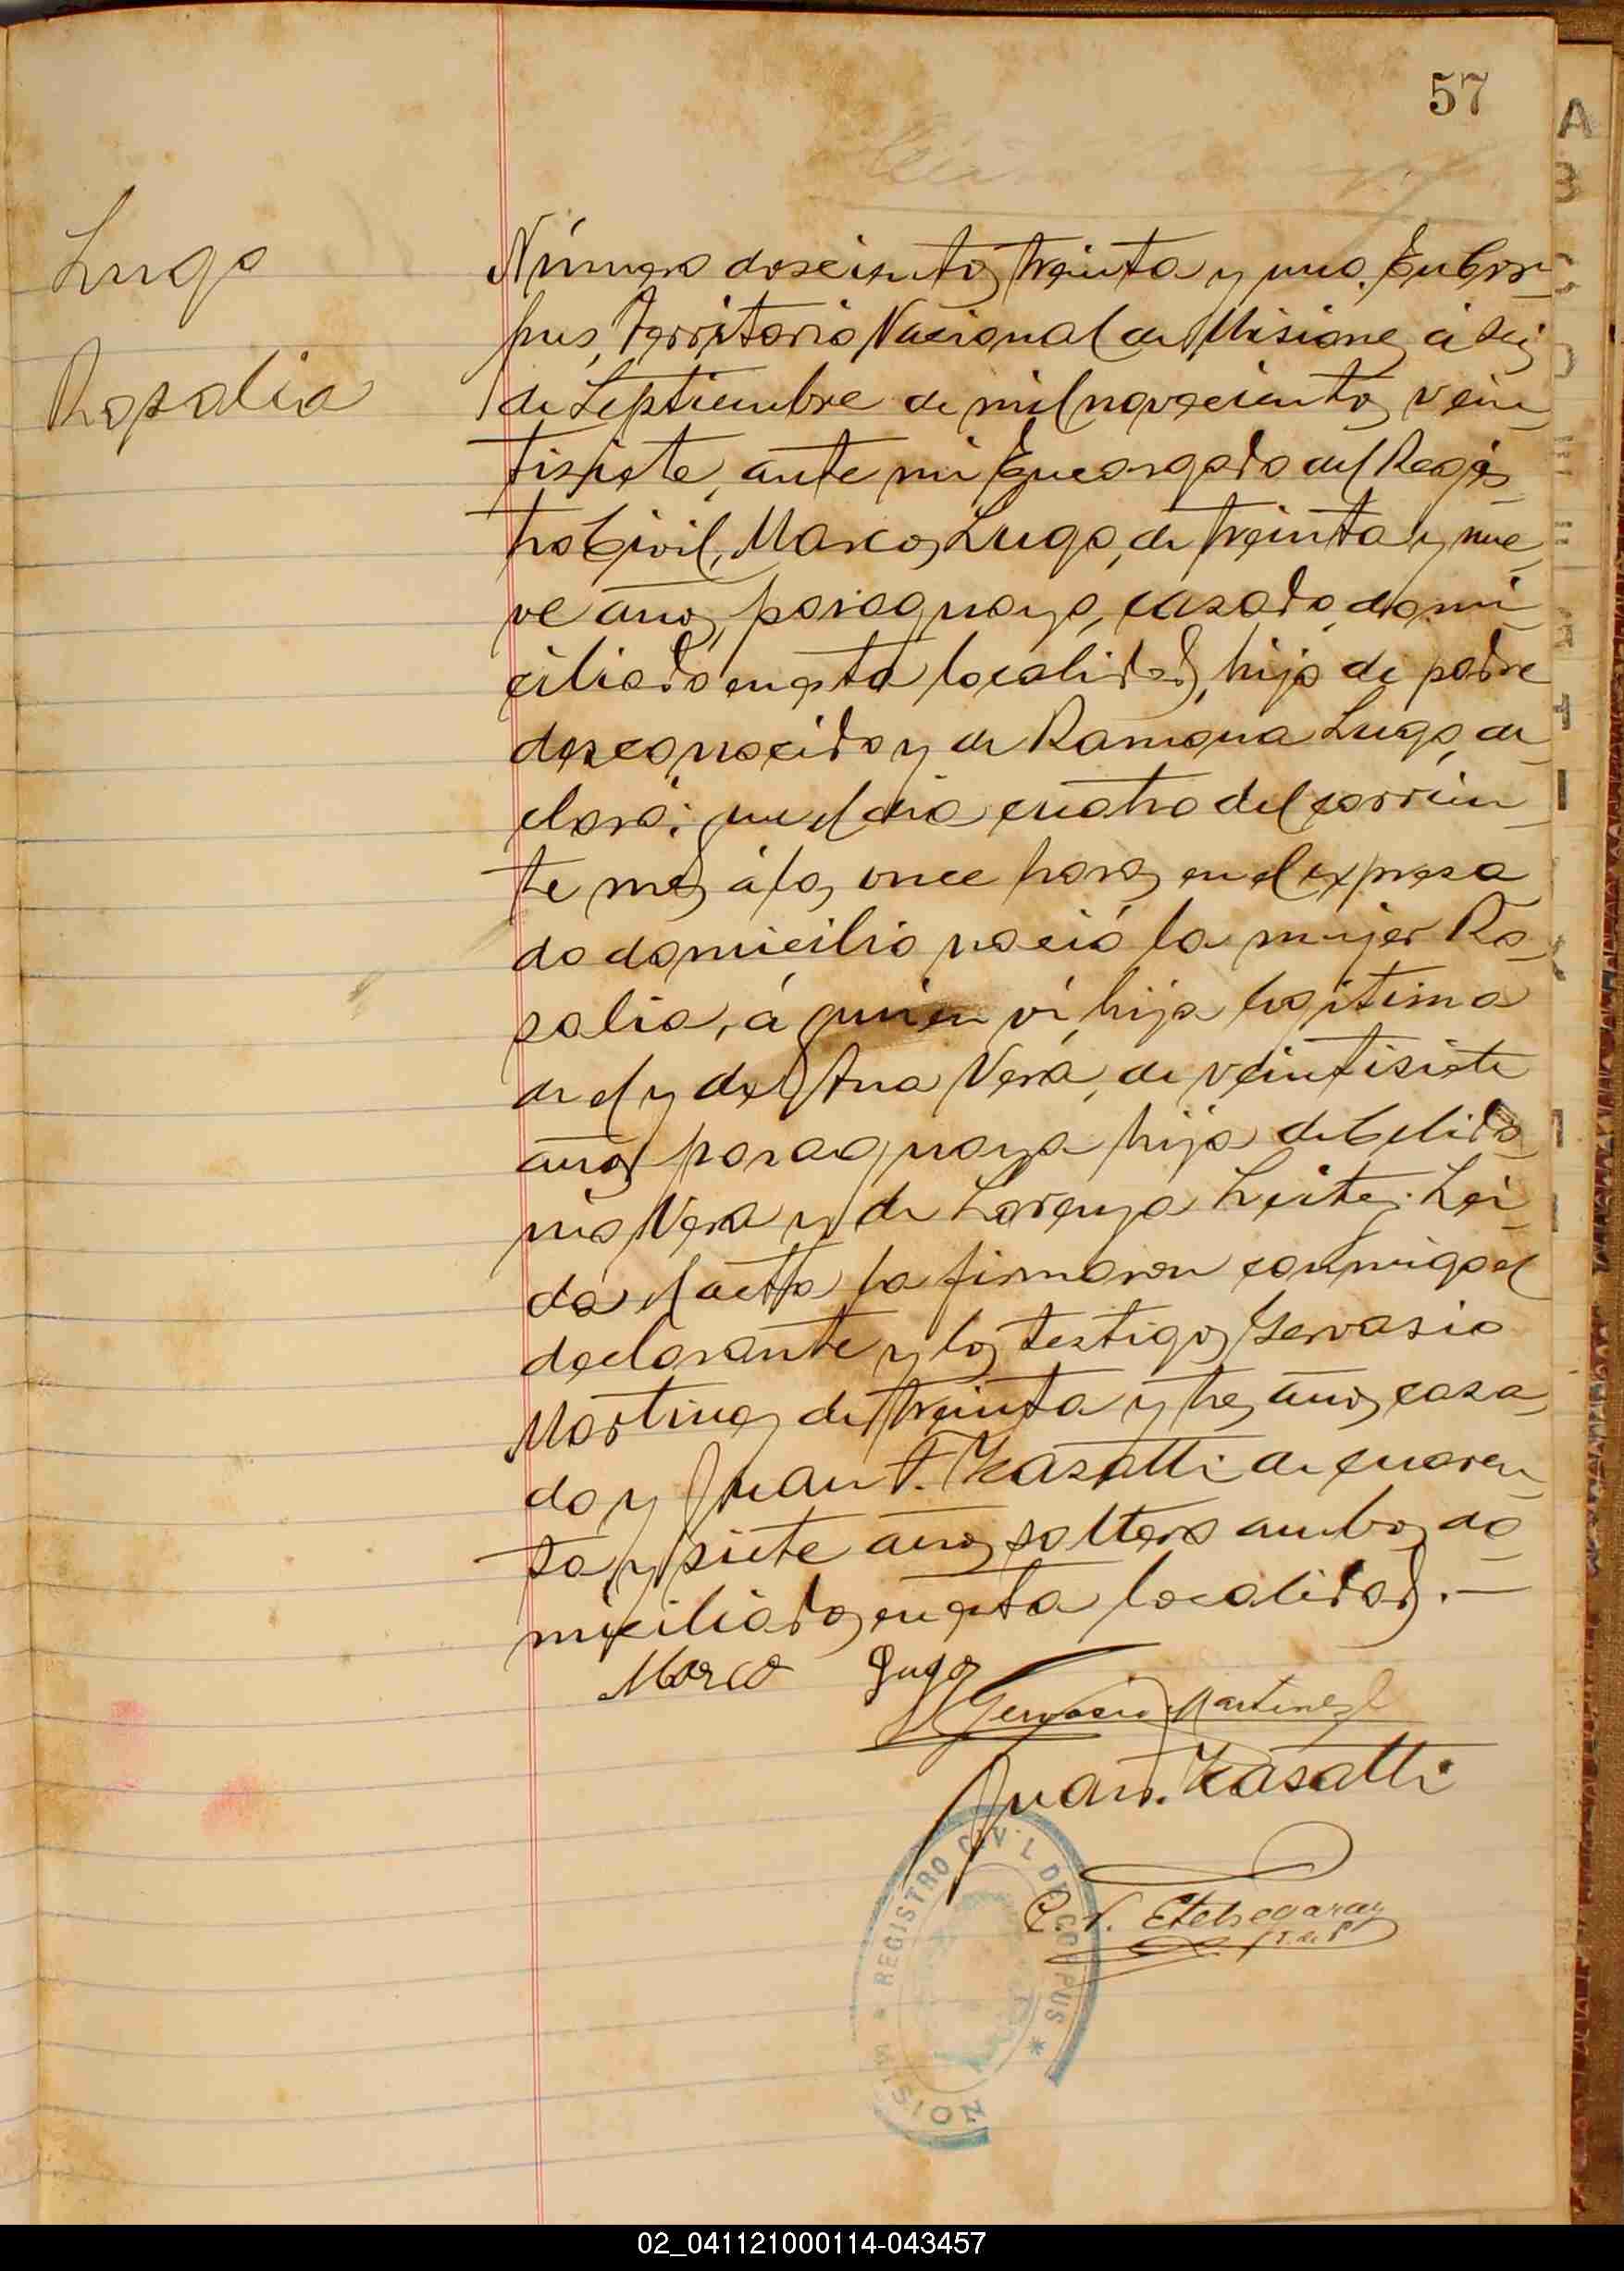 57
Lugo
Rosalia
Número doscientos treinta y uno. En Cor-
pus, Territorio Nacional de Misiones á seis
de Septiembre de mil novecientos vein-
tisiete, ante mi Encargado del Regis-
tro Civil, Marcos Lugo, de treinta y nue-
ve años, paraguayo, casado, domi-
ciliado en esta localidad, hijo de padre
desconocido y de Ramona Lugo, de-
claró: que el dia cuatro del corrien-
te mes á las once horas en el expresa-
do domicilio nació la mujer Ro-
salia, á quien ví, hija legitima
de el y del Ana Vera, de veintisiete
años paraguaya hija de Celido-
nio Vera y de Lorenza Leite. Lei-
da el acta la firmaron conmigo el
declarante y los testigos Gervasio
Martinez de treinta y tres años casa-
do y Juan F. Kasatti de cuaren-
ta y siete años soltero ambos do-
miciliados en esta localidad.—
Marco Lugo
Gervasio Martinez
Juan F. Kasatti
C. V. Etchegaray
J. de P.
REGISTRO CIVIL DE CORPUS * MISION
A
02_041121000114-043457